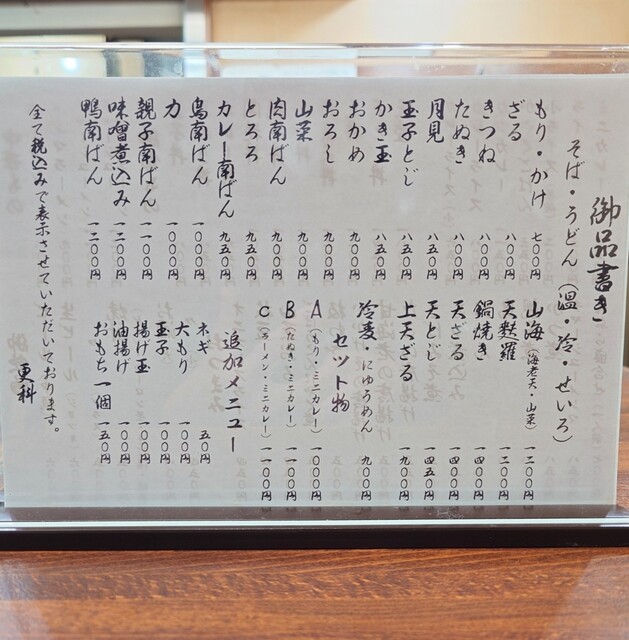 御品書き
そば・うどん（温・冷・せいろ）
もり・かけ 七〇〇円
ざる 八〇〇円
きつね 八〇〇円
たぬき 八〇〇円
月見 八五〇円
玉子とじ 八五〇円
かき玉 八五〇円
おかめ 九〇〇円
おろし 九〇〇円
山菜 九〇〇円
肉南ばん 九五〇円
とろろ 九五〇円
カレー南ばん 九五〇円
鳥南ばん 一〇〇〇円
力 一〇〇〇円
親子南ばん 一一〇〇円
味噌煮込み 一二〇〇円
鴨南ばん 一二〇〇円
山海（海老天・山菜） 一二〇〇円
天麩羅 一三〇〇円
鍋焼き 一四〇〇円
天ざる 一四〇〇円
天とじ 一四五〇円
上天ざる 一九〇〇円
冷麦・にゅうめん 九〇〇円
セット物
A（もり・ミニカレー） 一〇〇〇円
B（たぬき・ミニカレー） 一一〇〇円
C（ラーメン・ミニカレー） 一一〇〇円
追加メニュー
ネギ 五〇円
大もり 一〇〇円
玉子 一〇〇円
揚げ玉 一〇〇円
油揚げ 一〇〇円
おもち一個 一五〇円
全て税込みで表示させていただいております。
更科